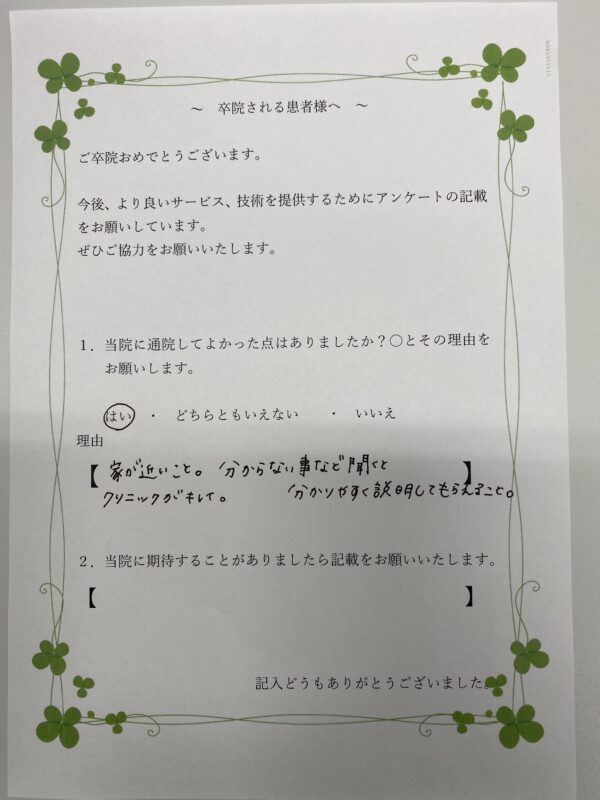 ～ 卒院される患者様へ ～
ご卒院おめでとうございます。
今後、より良いサービス、技術を提供するためにアンケートの記載
をお願いしています。
ぜひご協力をお願いいたします。
1．当院に通院してよかった点はありましたか？〇とその理由を
お願いします。
はい ・ どちらともいえない ・ いいえ
理由
【 家が近いこと。 分からない事など聞くと 】
クリニックがキレイ。 分かりやすく説明してもらえること。
2．当院に期待することがありましたら記載をお願いいたします。
【 】
記入どうもありがとうございました。